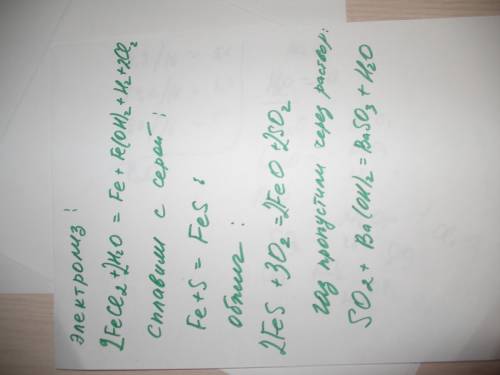 электролиз:
2FeCl₂+2H₂O = Fe + Fe(OH)₂ + H₂ + 2Cl₂
сплавили с серой:
Fe + S = FeS
обжиг:
2FeS + 3O₂ = 2FeO + 2SO₂
газ пропустили через раствор:
SO₂ + Ba(OH)₂ = BaSO₃ + H₂O